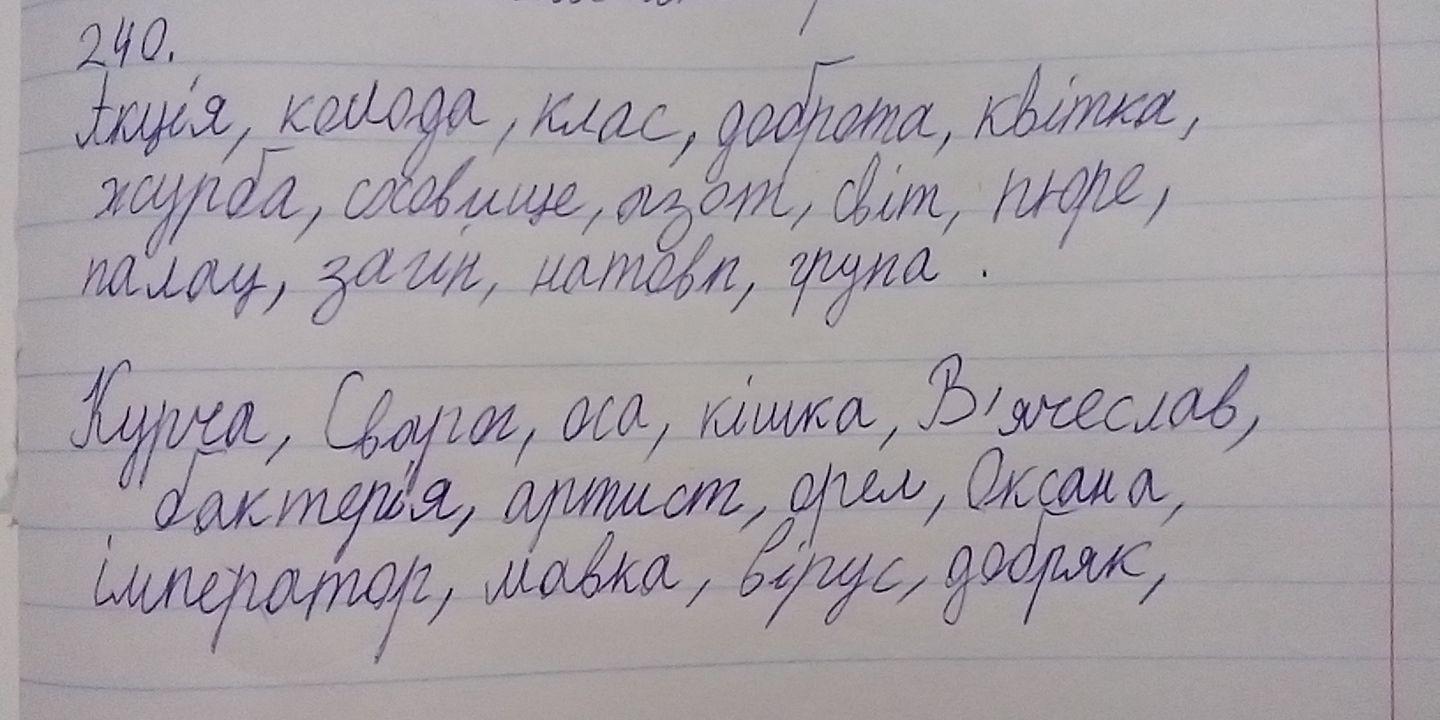 240.
Акція, колода, клас, доброта, квітка,
журба, сховище, азот, світ, пюре,
палац, загін, натовп, група.
Курча, Сварог, оса, кішка, В'ячеслав,
бактерія, артист, орел, Оксана,
імператор, мавка, вірус, добряк,